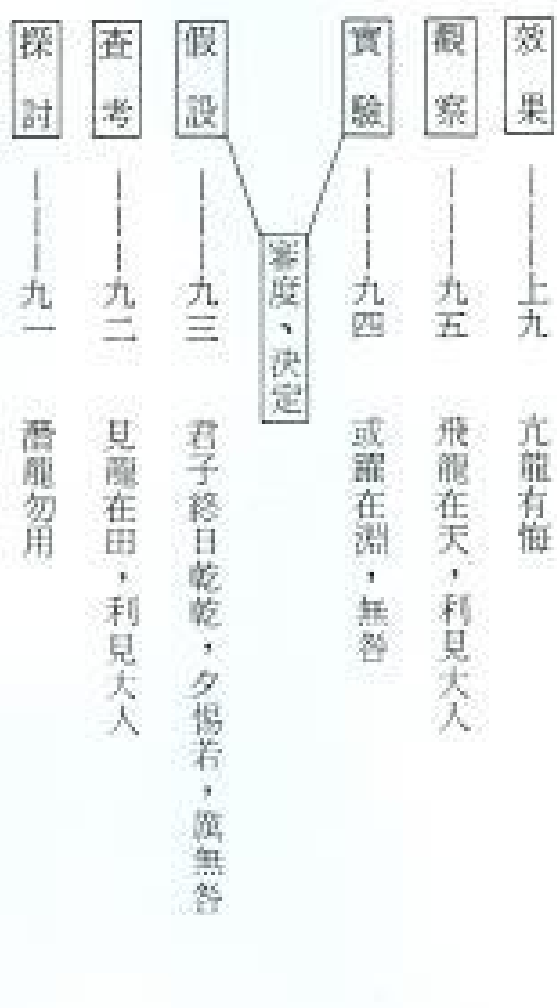 效果———上九 亢龍有悔
觀察———九五 飛龍在天，利見大人
實驗———九四 或躍在淵，無咎
審度、決定
假設———九三 君子終日乾乾，夕惕若，厲無咎
查考———九二 見龍在田，利見大人
探討———九一 潛龍勿用